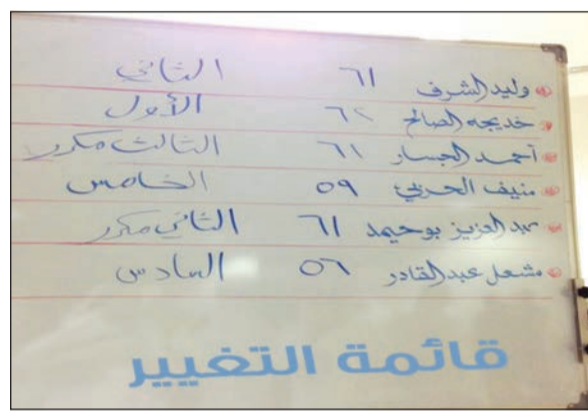 وليد الشرف ٦١ الثاني
خديجه الصالح ٦٢ الأول
أحمد الجسار ٦١ الثالث مكرر
منيف الحربي ٥٩ الخامس
عبدالعزيز بوحيمد ٦١ الثاني مكرر
مشعل عبدالقادر ٥٦ السادس
قائمة التغيير